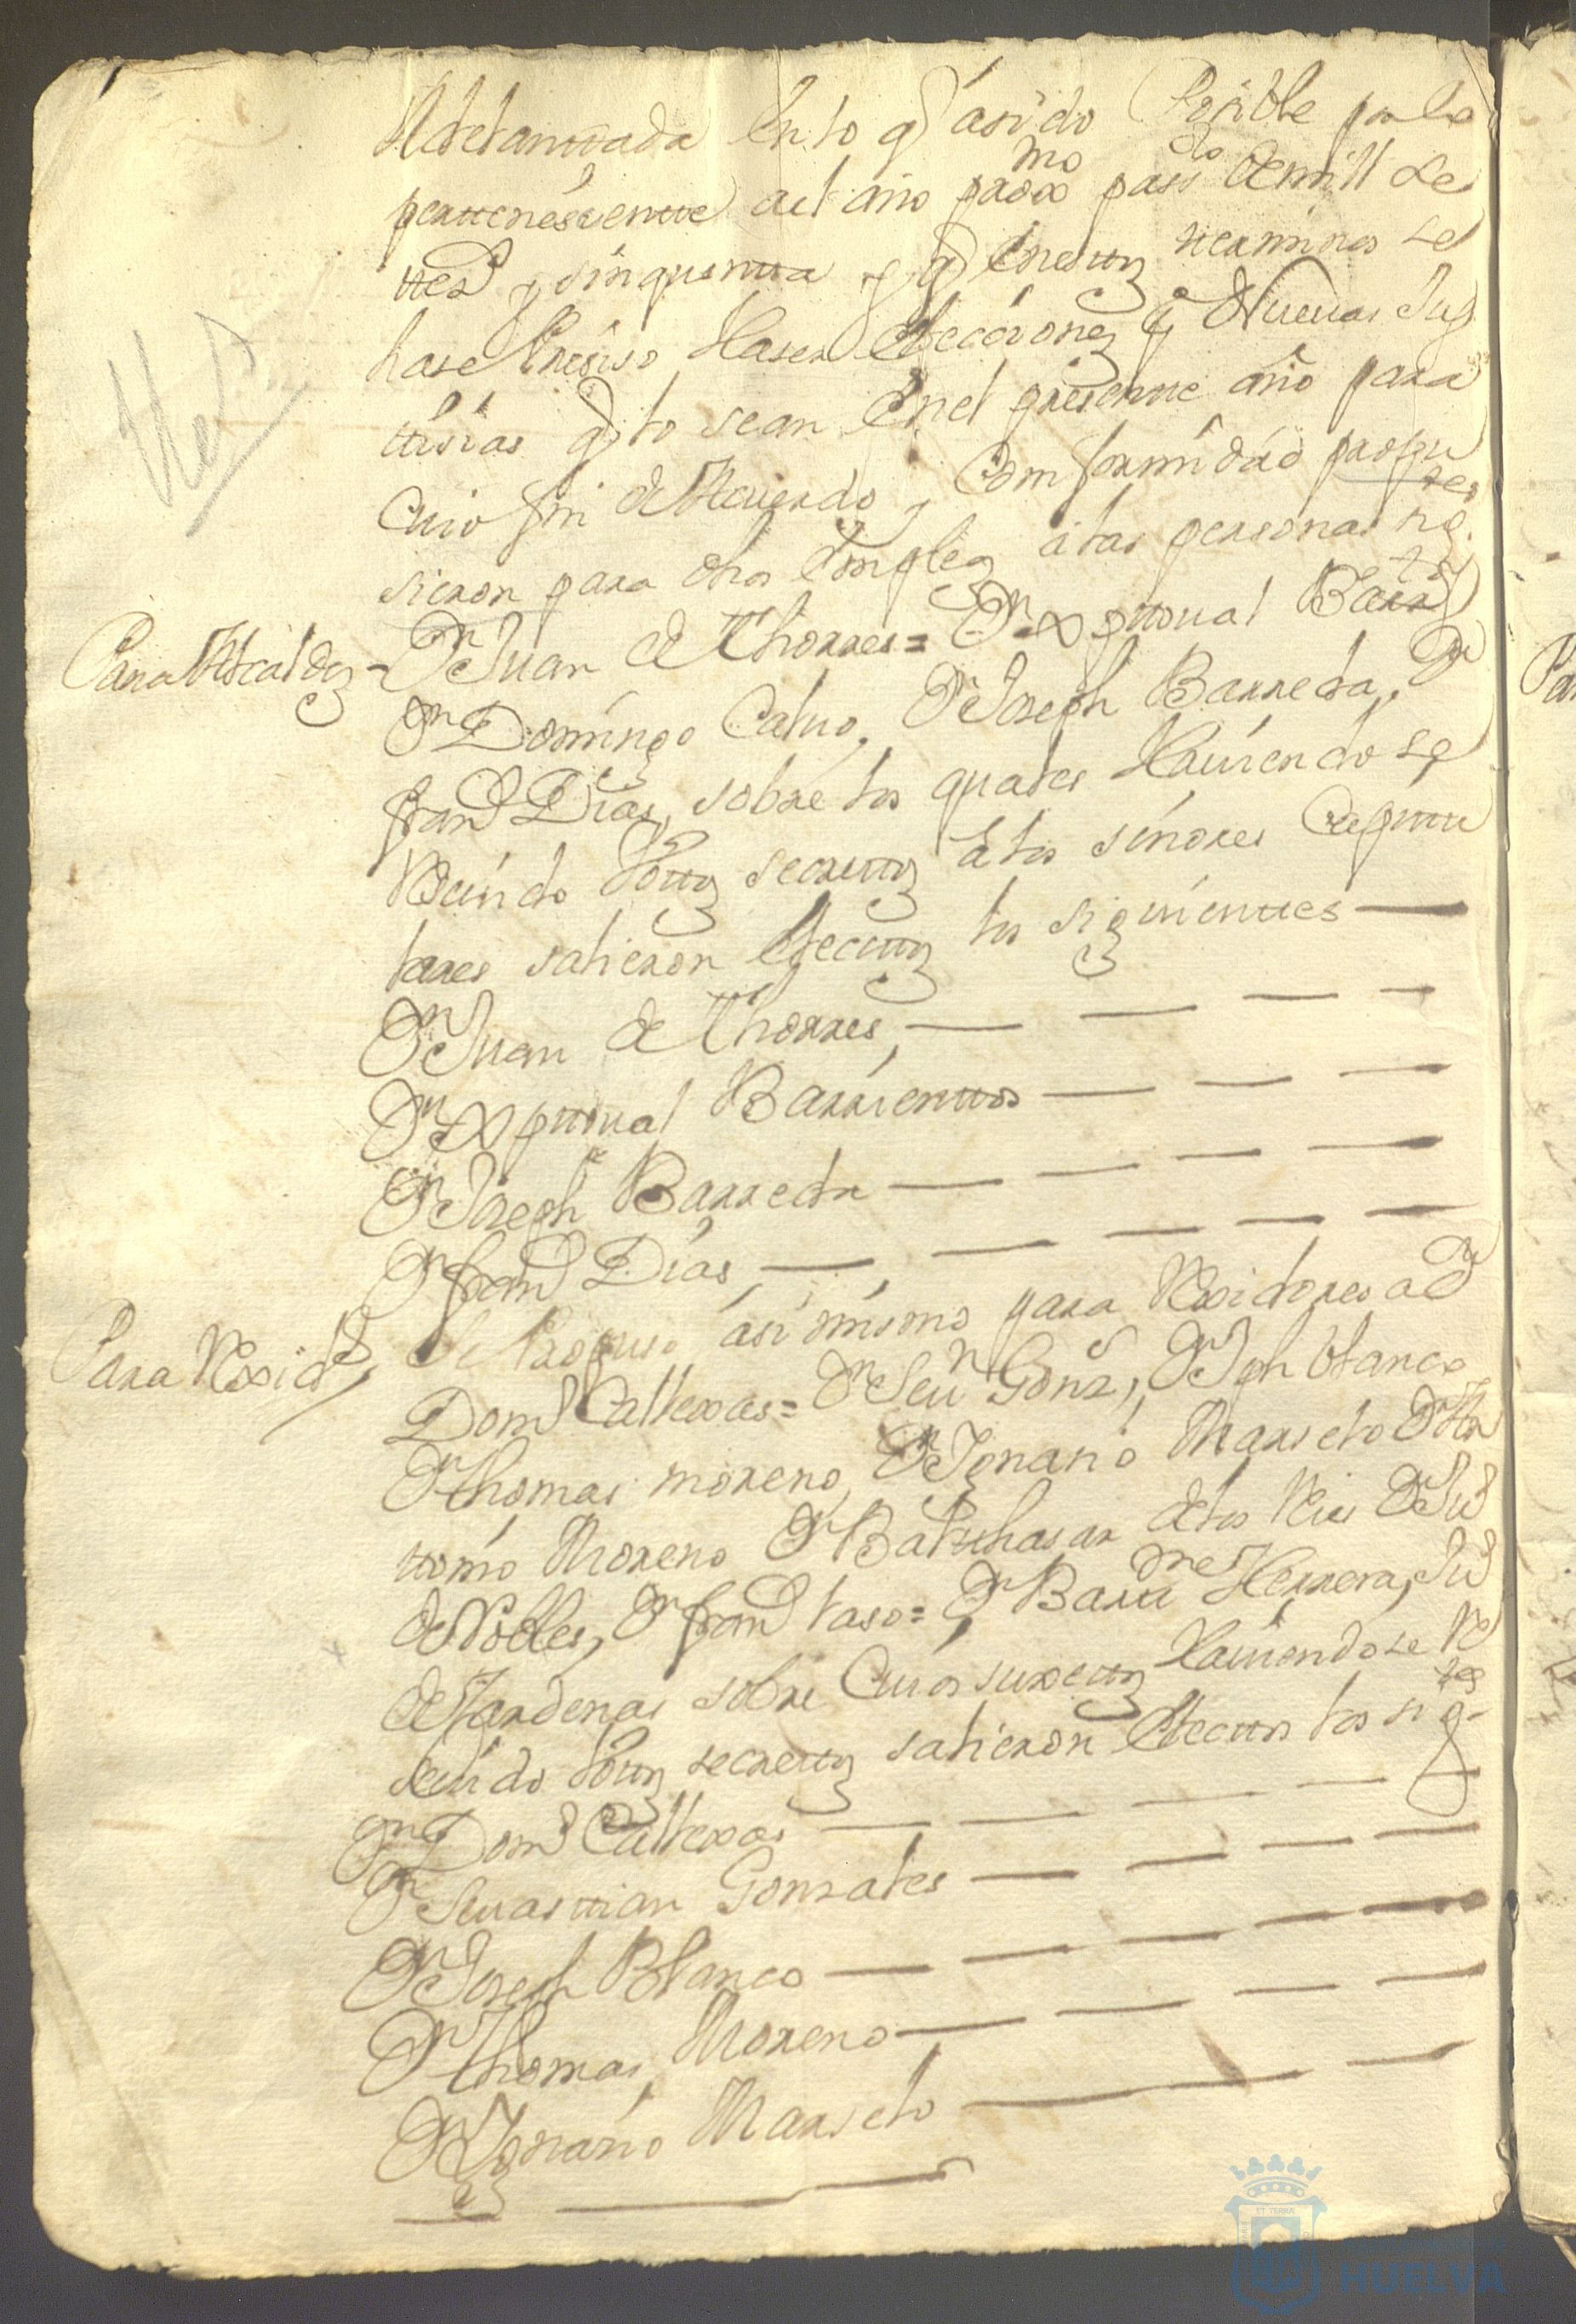 Adelantada en lo q ha sido Posible por lo
perttenesiente al año proxmo passdo de mill se
ttesos y sinquentta y q en esttos tterminos se
hase Presiso Haser elecciones de Nueuas Jus
ttisias q lo sean en el presente año para
Cuio fin de Acuerdo y Comformidad propu
sieron para dhos empleos a las personas sigtes
Para Alcaldes - Dn Juan de Thorres = Dn Xpttoual Barrtos
Dn Domingo Caluo, Dn Joseph Barreda, Dn
Franco Dias, sobre los quales Hauiendo se
Reciuido Vottos secrettos de los señores Capittu
lares salieron electtos los siguienttes
Dn Juan de Thorres
Dn Xpttoual Barrienttos
Dn Joseph Barreda
Dn Franco Dias
Para Rexidres, Se Propuso asi mismo para Rexidores a Dn
Domo Callexas = Dn Seun Gonz, Dn Jph blanco
Dn Thomas moreno, Dn Ygnasio Marselo Dn An
ttonio Moreno Dn Balthasar de los Reies Dn Jud
de Robles, Dn franco laso = Dn Bartme Herrera, Jud
de Cardenas sobre Cuios sugettos Hauiendose Re
seuido Vottos secrettos salieron electtos los sigtes
Dn Domo Callexas
Dn Seuasttian Gonzales
Dn Joseph Blanco
Dn Thomas Moreno
Dn Ygnasio Marselo
HUELVA